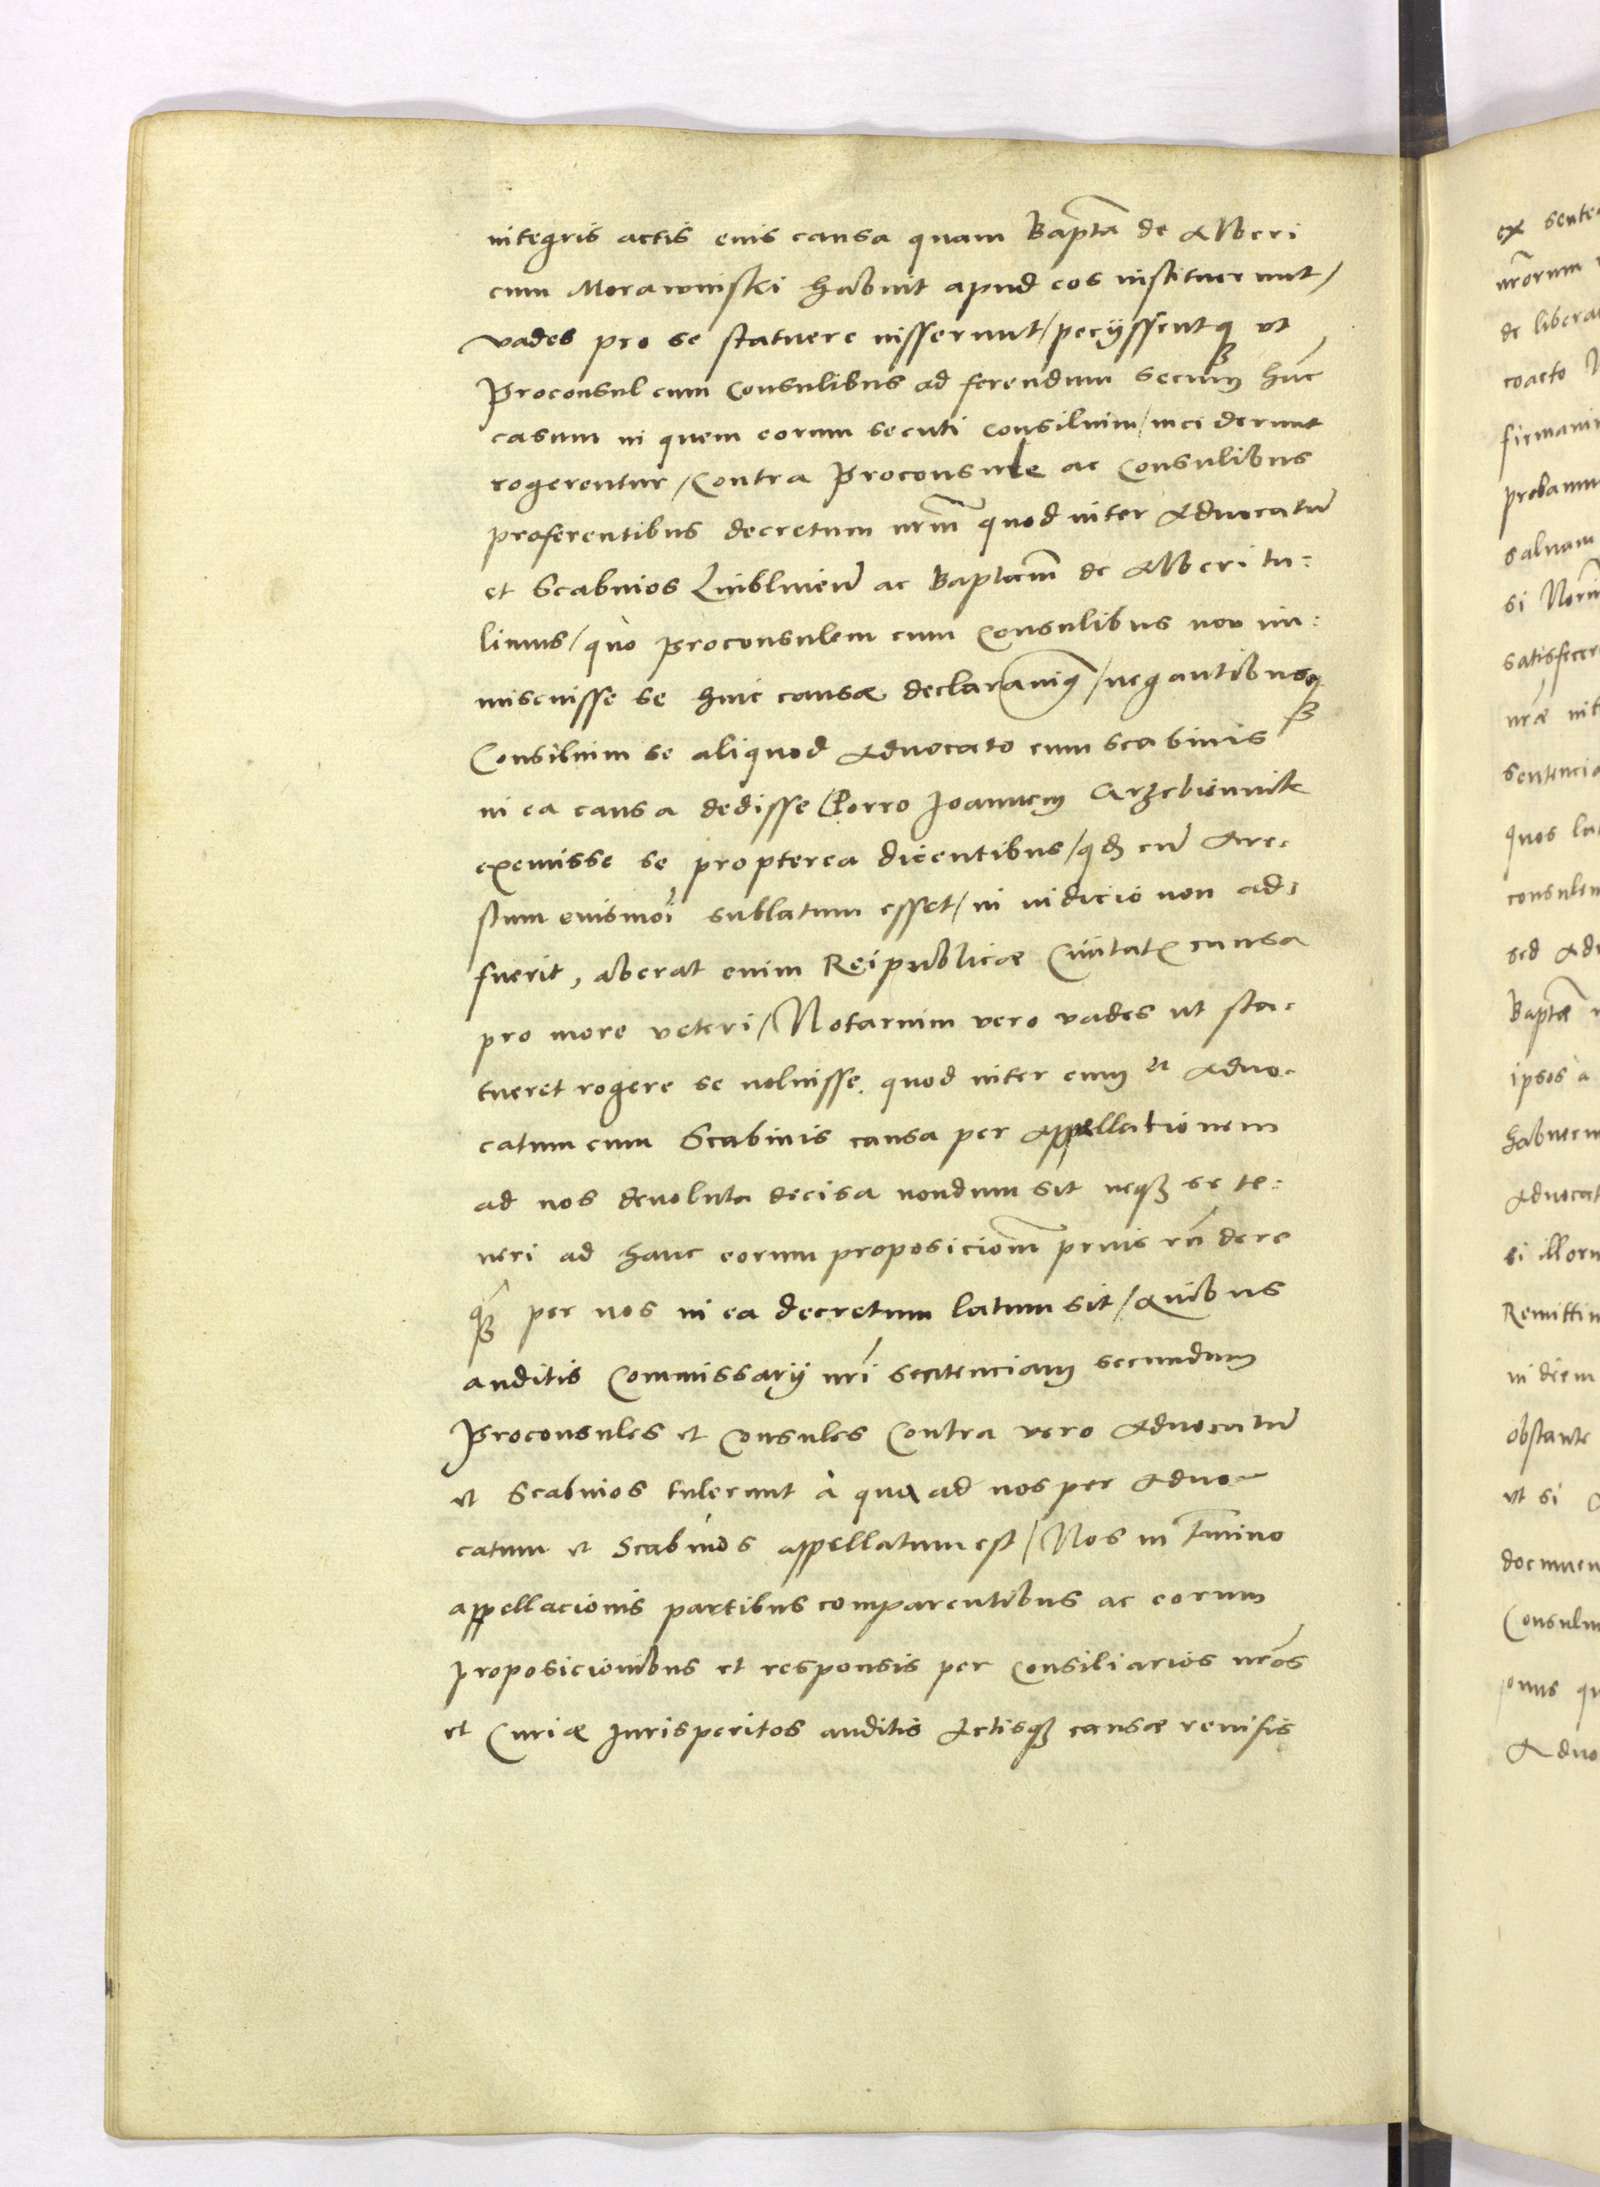 integris actis eius causa quam Bapt̃a de Alberi
cum Morawinski habuit apud eos instituerunt /
vades pro se statuere iusserunt / pecyssentq₃ vt
Proconsul cum Consulibus ad ferendum secum hũc
casum in quem eorum secuti consilium / inciderunt
cogerentur / Contra Proconsule ac Consulibus
proferentibus decretum nr̃m quod inter Aduocatũ
et Scabinos Lublineñ ac Baptam̃ de Alberi tu:
limus / quò Proconsulem cum Consulibus non im:
miscuisse se huic causæ declarauimꝰ / negantibusq₃
Consilium se aliquod Aduocato cum scabinis
in ea causa dedisse / Porro Joannem
exemisse se propterea dicentibus / qd̃ cũ Are-
stum eiusmoĩ sublatum esset / in iudicio non ad:
fuerit, aberat enim Reipublicæ Ciuitatꝭ causa
pro more veteri / Notarium vero vades ut sta-
tueret cogere se noluisse quod inter eum et Aduo-
catum cum Scabinis causa per appellationem
ad nos deuoluta decisa nondum sit neq₃ se te:
neri ad hanc eorum proposicionem̃ prius rñdere
q̃₃ per nos in ea decretum latum sit / Quibus
auditis Commissarij nr̃i sentenciam secundum
Proconsules et Consules Contra vero Aduocatũ
et Scabinos tulerunt à qua ad nos per Aduo-
catum et Scabinos appellatum est / Nos in Tm̃ino
appellacionis partibus comparentibus ac eorum
proposicionibus et responsis per Consiliarios nr̃os
et Curiæ Jurisperitos auditis Actisq₃ causæ reuisis
ex
de
coacto
probamu
saluam
si
quos
sed
ipsos à
si
Remittim
in diem
obstante
vt si
Aduo